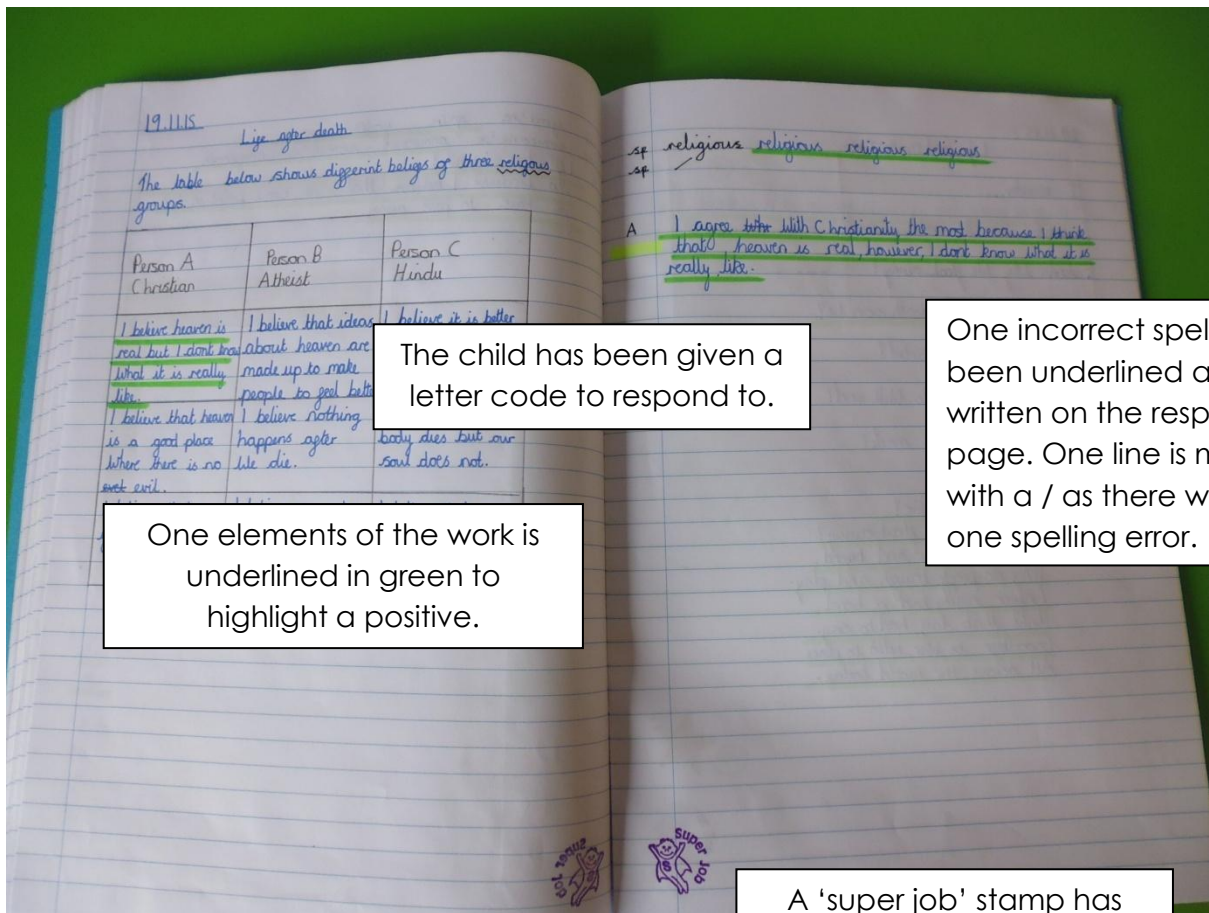 19.11.15
Life after death
The table below shows differint beliefs of three religous
groups.
Person A
Christian
Person B
Atheist
Person C
Hindu
I believe heaven is
real but I dont know
what it is really
like.
I believe that ideas
about heaven are
made up to make
people to feel
I believe it is better
I believe that heaven
is a good place
where there is no
evil.
I believe nothing
happens after
We die.
body dies but our
soul does not.
sp religious religious religious religious
sp /
A I agree With Christianity the most because I think
that heaven is real, however, I dont know what it is
really like.
The child has been given a
letter code to respond to.
One elements of the work is
underlined in green to
highlight a positive.
One incorrect spel
been underlined a
written on the resp
page. One line is m
with a / as there w
one spelling error.
super job
super job
A ‘super job’ stamp has